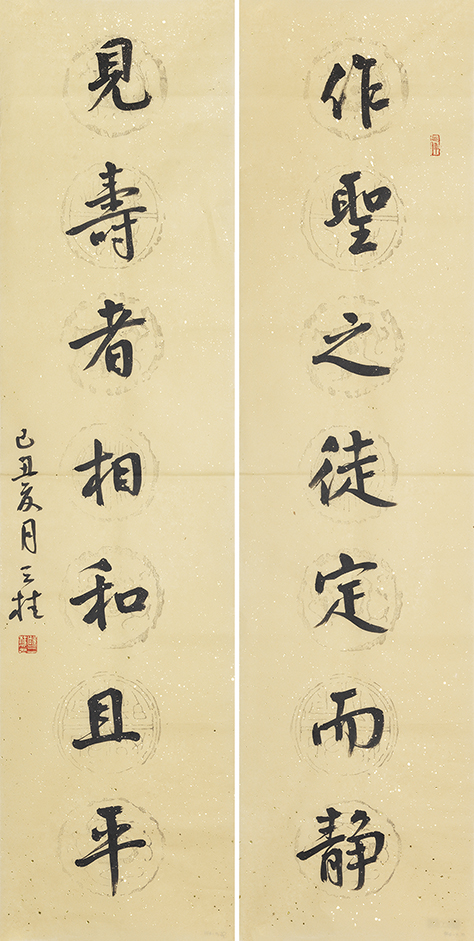 作聖之徒定而静
見壽者相和且平
己丑亥月三桂